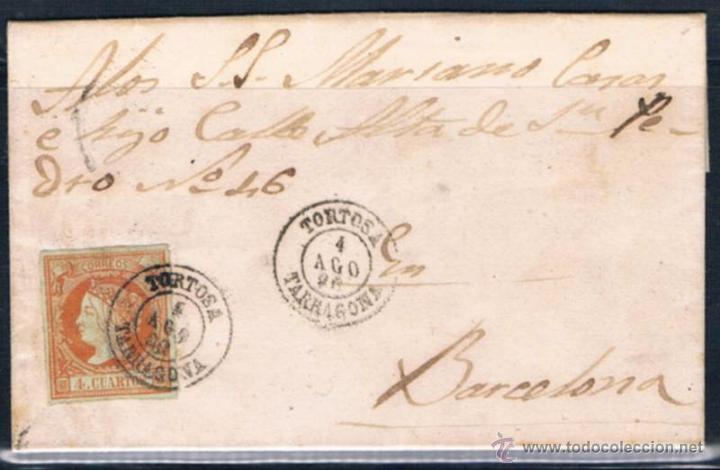 A los S.S. Mariano Casas
e hijo Calle Alta de Sn Pe-
dro No 46
En
Barcelona
TORTOSA
4
AGO
TARRAGONA
CORREOS
4 CUARTOS
TORTOSA
4
AGO
TARRAGONA
© www.todocoleccion.net